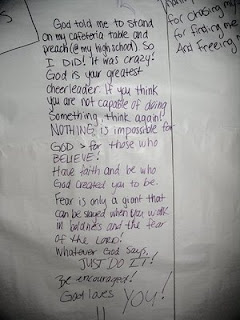 God told me to stand
on my cafeteria table and
preach (@ my high school). So
I DID! It was crazy!
God is your greatest
cheerleader. If you think
you are not capable of doing
Something, think again!
NOTHING is impossible for
GOD > for those who
BELIEVE!
Have faith and be who
God created you to be.
Fear is only a giant that
can be slayed when you walk
in boldness and the fear
of the Lord!
Whatever God says,
JUST DO IT!
Be encouraged!
God loves YOU!
for chasing me
for finding me
And freeing